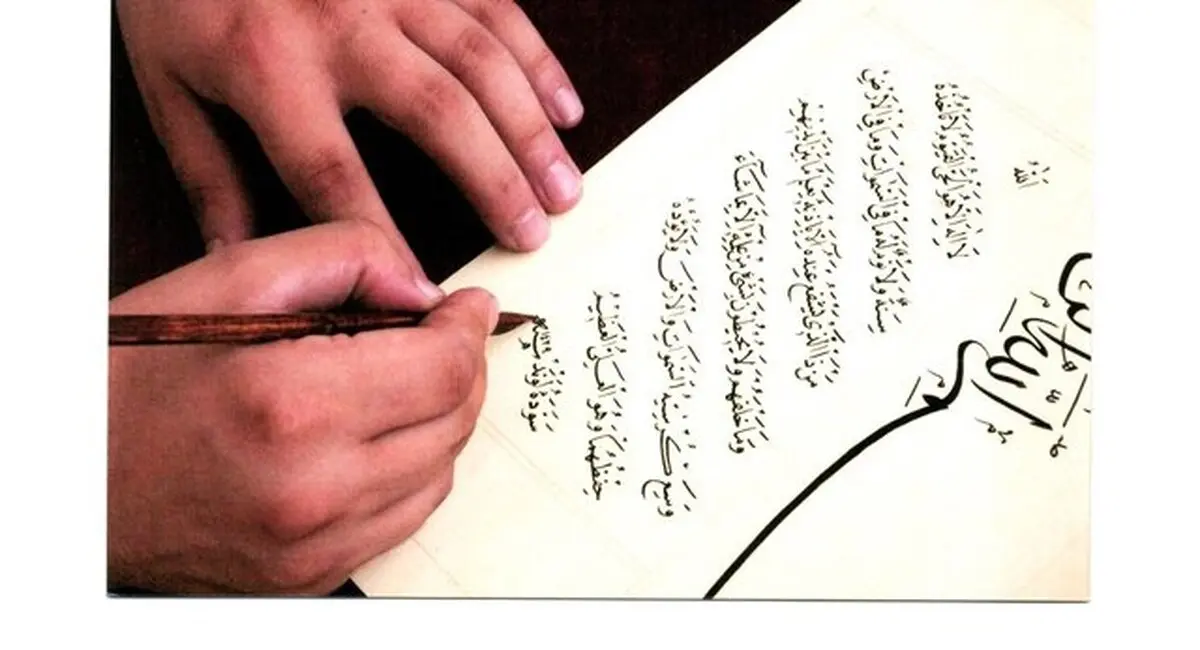 اَللّٰهُ
لَا اِلٰهَ اِلَّا هُوَ اَلْحَيُّ الْقَيُّومُ لَا تَأْخُذُهُ
سِنَةٌ وَلَا نَوْمٌ لَهُ مَا فِي السَّمٰوَاتِ وَمَا فِي الْاَرْضِ
مَنْ ذَا الَّذِي يَشْفَعُ عِنْدَهُ اِلَّا بِاِذْنِهِ يَعْلَمُ مَا بَيْنَ اَيْدِيهِمْ
وَمَا خَلْفَهُمْ وَلَا يُحِيطُونَ بِشَيْءٍ مِنْ عِلْمِهِ اِلَّا بِمَا شَاءَ
وَسِعَ كُرْسِيُّهُ السَّمٰوَاتِ وَالْاَرْضَ وَلَا يَؤُدُهُ
حِفْظُهُمَا وَهُوَ الْعَلِيُّ الْعَظِيمُ